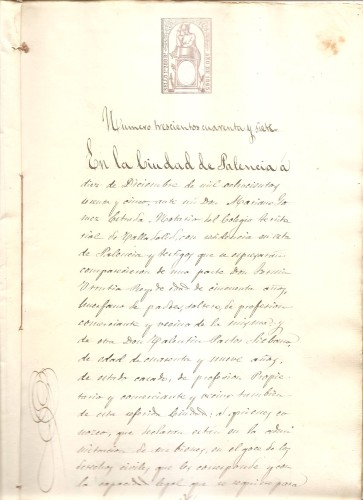 Número trescientos cuarenta y siete
En la Ciudad de Palencia á
diez de Diciembre de mil ochocientos
y cinco, ante mi Don Mariano
Notario del Colegio
de Valladolid, con residencia en esta
de Palencia y testigos que se expresarán
comparecieron de una parte Don Fermín
Urrutia de edad de cincuenta años,
huérfano de padres, soltero, de profesión
comerciante y vecino de la misma; y
de otra Don Valentín Pastor
de edad de cuarenta y nueve años,
de estado casado, de profesión Propie
tario y comerciante y vecino también
de esta referida Ciudad, á quienes co
nozco, que declaran estar en la admi
nistración de sus bienes, en el goce de los
derechos civiles que les corresponde y con
la capacidad legal que se requiere para